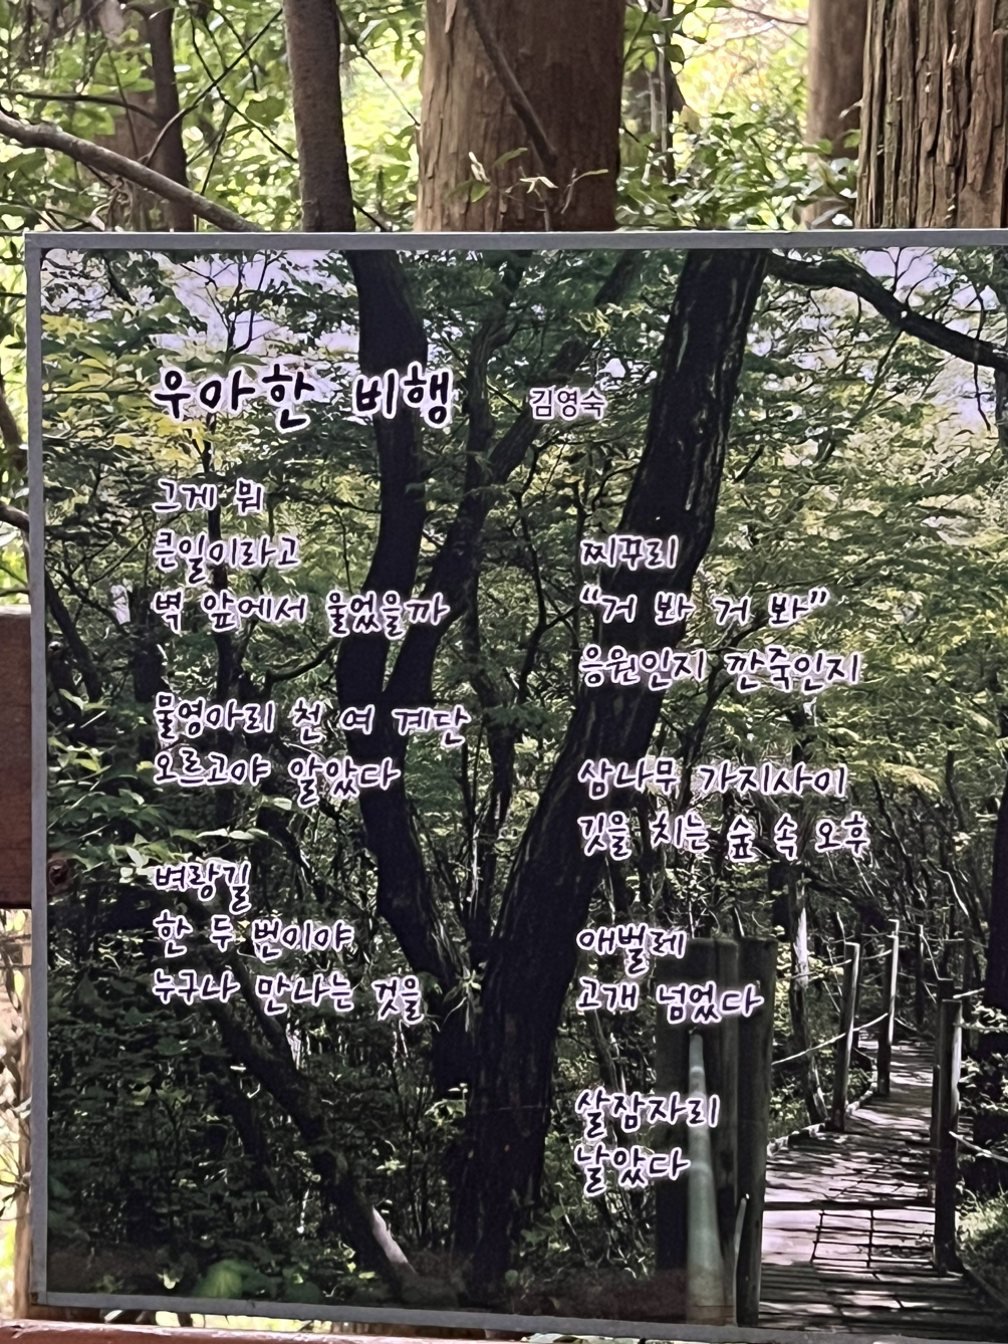 우아한 비행 김영숙
그게 뭐
큰일이라고
벽 앞에서 울었을까
물영아리 천 여 계단
오르고야 알았다
벼랑길
한 두 번이야
누구나 만나는 것을
찌꾸리
“거 봐 거 봐”
응원인지 깐죽인지
삼나무 가지사이
깃을 치는 숲 속 오후
애벌레
고개 넘었다
살잠자리
날았다